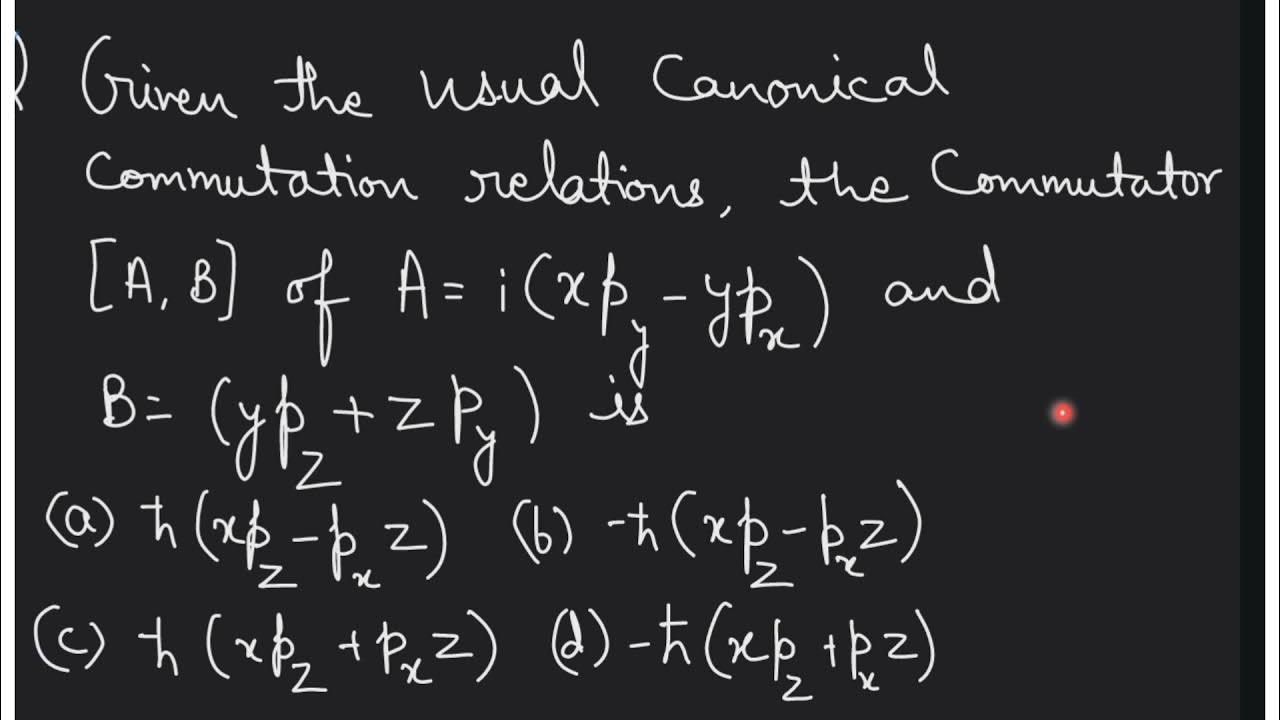 ) Given the usual Canonical
Commutation relations, the Commutator
[A, B] of A = i(xp_y - yp_x) and
B = (yp_z + zp_y) is
(a) ħ(xp_z - p_x z) (b) -ħ(xp_z - p_x z)
(c) ħ(xp_z + p_x z) (d) -ħ(xp_z + p_x z)